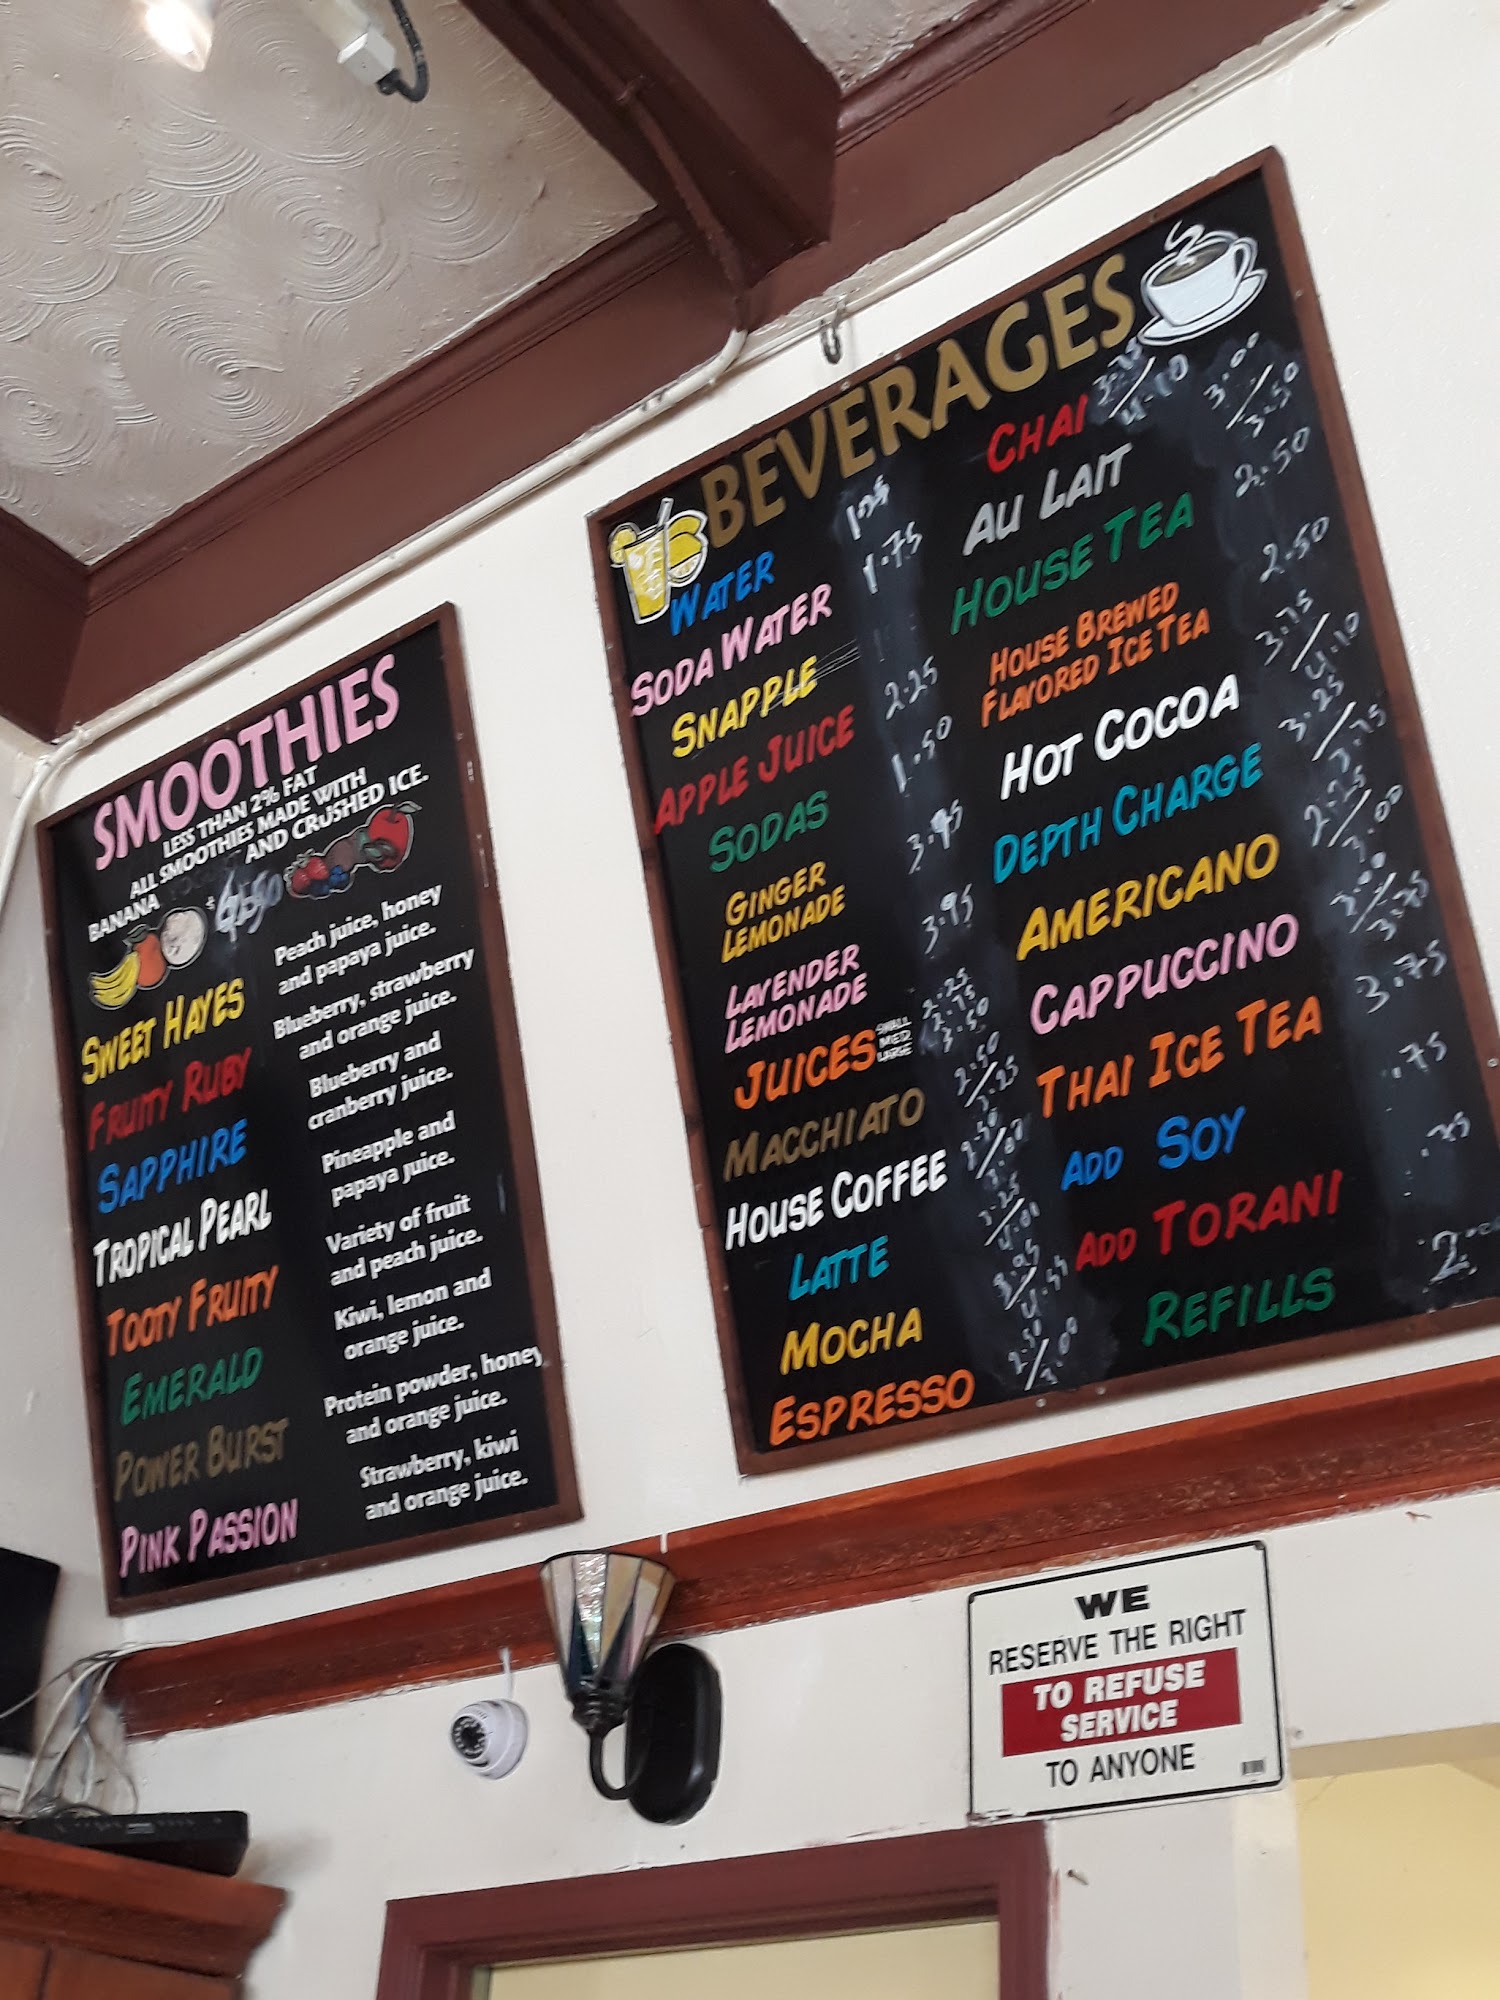 SMOOTHIES
LESS THAN 2% FAT
ALL SMOOTHIES MADE WITH
BANANA AND CRUSHED ICE.
SWEET HAYES Peach juice, honey
and papaya juice.
FRUITY RUBY Blueberry, strawberry
and orange juice.
SAPPHIRE Blueberry and
cranberry juice.
TROPICAL PEARL Pineapple and
papaya juice.
TOOTY FRUITY Variety of fruit
and peach juice.
EMERALD Kiwi, lemon and
orange juice.
POWER BURST Protein powder, honey
and orange juice.
PINK PASSION Strawberry, kiwi
and orange juice.
BEVERAGES
WATER
SODA WATER 1.75
SNAPPLE
APPLE JUICE 2.25
SODAS 1.50
GINGER
LEMONADE 3.95
LAVENDER
LEMONADE 3.95
JUICES SMALL 2.25
MED 2.75
LARGE 3.50
MACCHIATO 2.50/3.25
HOUSE COFFEE 2.50/3.00
LATTE 3.25/4.00
MOCHA 3.95/4.55
ESPRESSO 2.50/3.00
CHAI 4.10
AU LAIT 3.00/3.50
HOUSE TEA 2.50
HOUSE BREWED
FLAVORED ICE TEA 2.50
HOT COCOA 3.75/4.10
DEPTH CHARGE 3.25/3.75
AMERICANO 2.25/3.00
CAPPUCCINO 3.00/3.75
THAI ICE TEA 3.75
ADD SOY .75
ADD TORANI .75
REFILLS
WE
RESERVE THE RIGHT
TO REFUSE
SERVICE
TO ANYONE